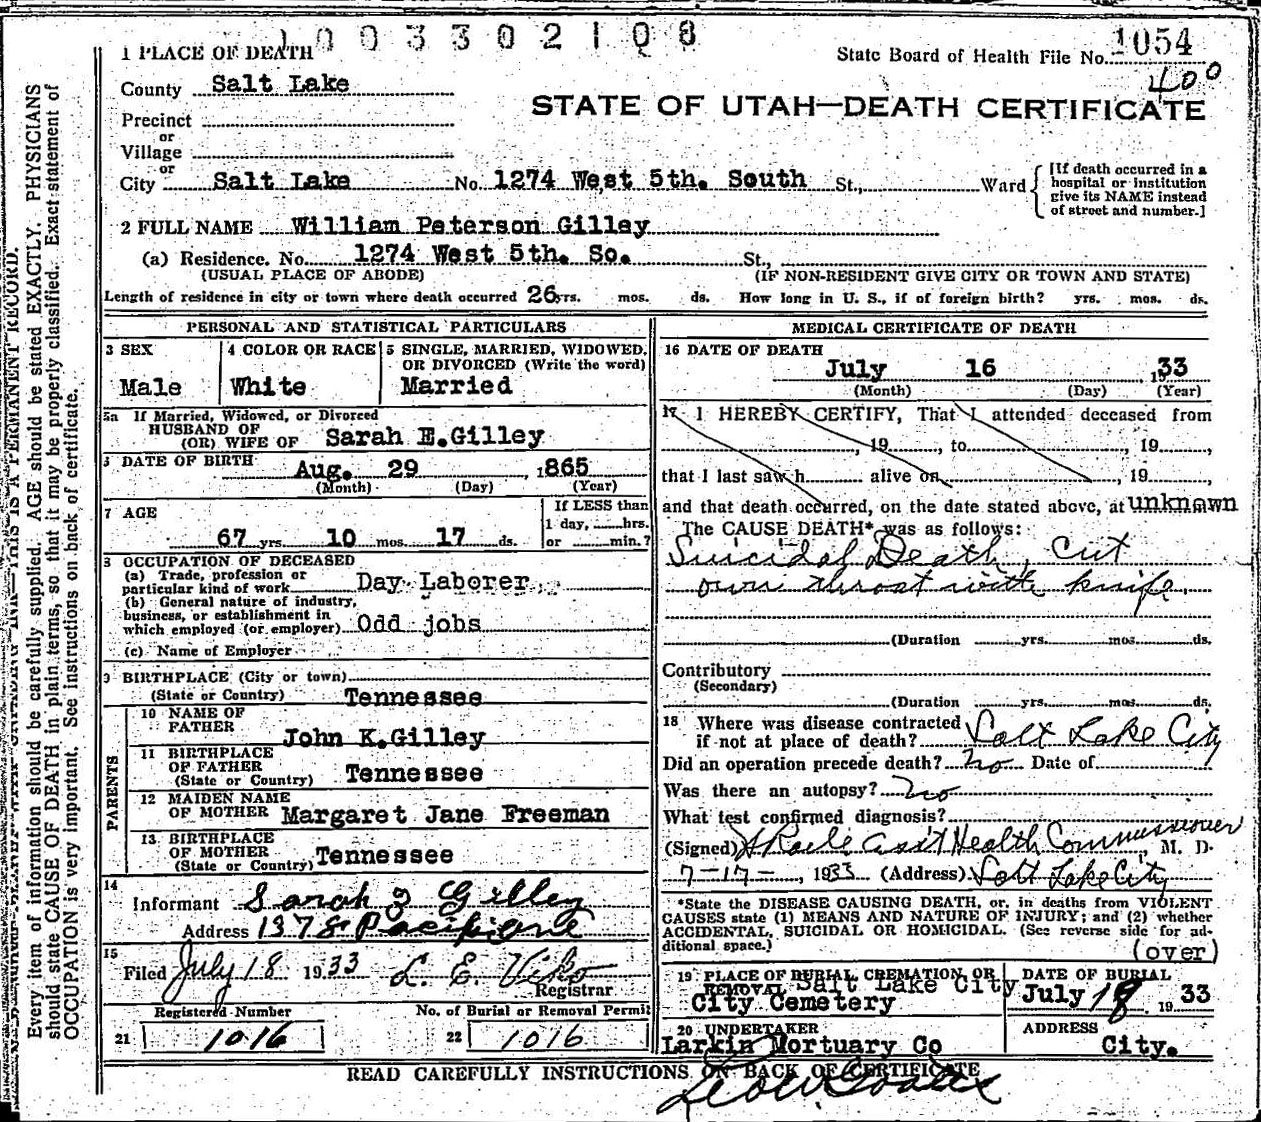 1003302108
1 PLACE OF DEATH
State Board of Health File No. 1054
400
County Salt Lake
STATE OF UTAH—DEATH CERTIFICATE
Precinct
or
Village
or
City Salt Lake No. 1274 West 5th. South St., Ward
[If death occurred in a hospital or institution give its NAME instead of street and number.]
2 FULL NAME William Peterson Gilley
(a) Residence. No. 1274 West 5th. So. St.,
(USUAL PLACE OF ABODE) (IF NON-RESIDENT GIVE CITY OR TOWN AND STATE)
Length of residence in city or town where death occurred 26 yrs. mos. ds. How long in U. S., if of foreign birth? yrs. mos. ds.
PERSONAL AND STATISTICAL PARTICULARS
3 SEX
Male
4 COLOR OR RACE
White
5 SINGLE, MARRIED, WIDOWED, OR DIVORCED (Write the word)
Married
5a If Married, Widowed, or Divorced
HUSBAND OF
(OR) WIFE OF Sarah E.Gilley
DATE OF BIRTH
Aug. 29 1865
(Month) (Day) (Year)
7 AGE
67 yrs 10 mos. 17 ds.
If LESS than
1 day, hrs.
or min.?
OCCUPATION OF DECEASED
(a) Trade, profession or
particular kind of work Day Laborer
(b) General nature of industry,
business, or establishment in
which employed (or employer) Odd jobs
(c) Name of Employer
BIRTHPLACE (City or town)
(State or Country) Tennessee
PARENTS
10 NAME OF
FATHER John K.Gilley
11 BIRTHPLACE
OF FATHER
(State or Country) Tennessee
12 MAIDEN NAME
OF MOTHER Margaret Jane Freeman
13 BIRTHPLACE
OF MOTHER
(State or Country) Tennessee
14
Informant Sarah Gilley
Address 1378
15
Filed July 18 1933 L. E. Viko
Registrar
Registered Number
21 1016
No. of Burial or Removal Permit
22 1016
MEDICAL CERTIFICATE OF DEATH
16 DATE OF DEATH
July 16 1933
(Month) (Day) (Year)
17 I HEREBY CERTIFY, That I attended deceased from
, 19 , to , 19
that I last saw h alive on , 19
and that death occurred, on the date stated above, at unknown
The CAUSE DEATH* was as follows:
Suicidal Death, Cut
own throat with knife.
(Duration yrs. mos. ds.
Contributory
(Secondary)
(Duration yrs. mos. ds.
18 Where was disease contracted
if not at place of death? Salt Lake City
Did an operation precede death? no Date of
Was there an autopsy? no
What test confirmed diagnosis?
(Signed) Ass't Health Commissioner, M. D.
7-17-, 1933 (Address) Salt Lake City
*State the DISEASE CAUSING DEATH, or, in deaths from VIOLENT
CAUSES state (1) MEANS AND NATURE OF INJURY; and (2) whether
ACCIDENTAL, SUICIDAL OR HOMICIDAL. (See reverse side for ad-
ditional space.)
(over)
19 PLACE OF BURIAL CREMATION OR
REMOVAL Salt Lake City
City Cemetery
DATE OF BURIAL
July 18 1933
20 UNDERTAKER
Larkin Mortuary Co
ADDRESS
City.
READ CAREFULLY INSTRUCTIONS ON BACK OF CERTIFICATE
Every item of information should be carefully supplied. AGE should be stated EXACTLY. PHYSICIANS
should state CAUSE OF DEATH in plain terms, so that it may be properly classified. Exact statement of
OCCUPATION is very important. See instructions on back of certificate.
THIS IS A PERMANENT RECORD.